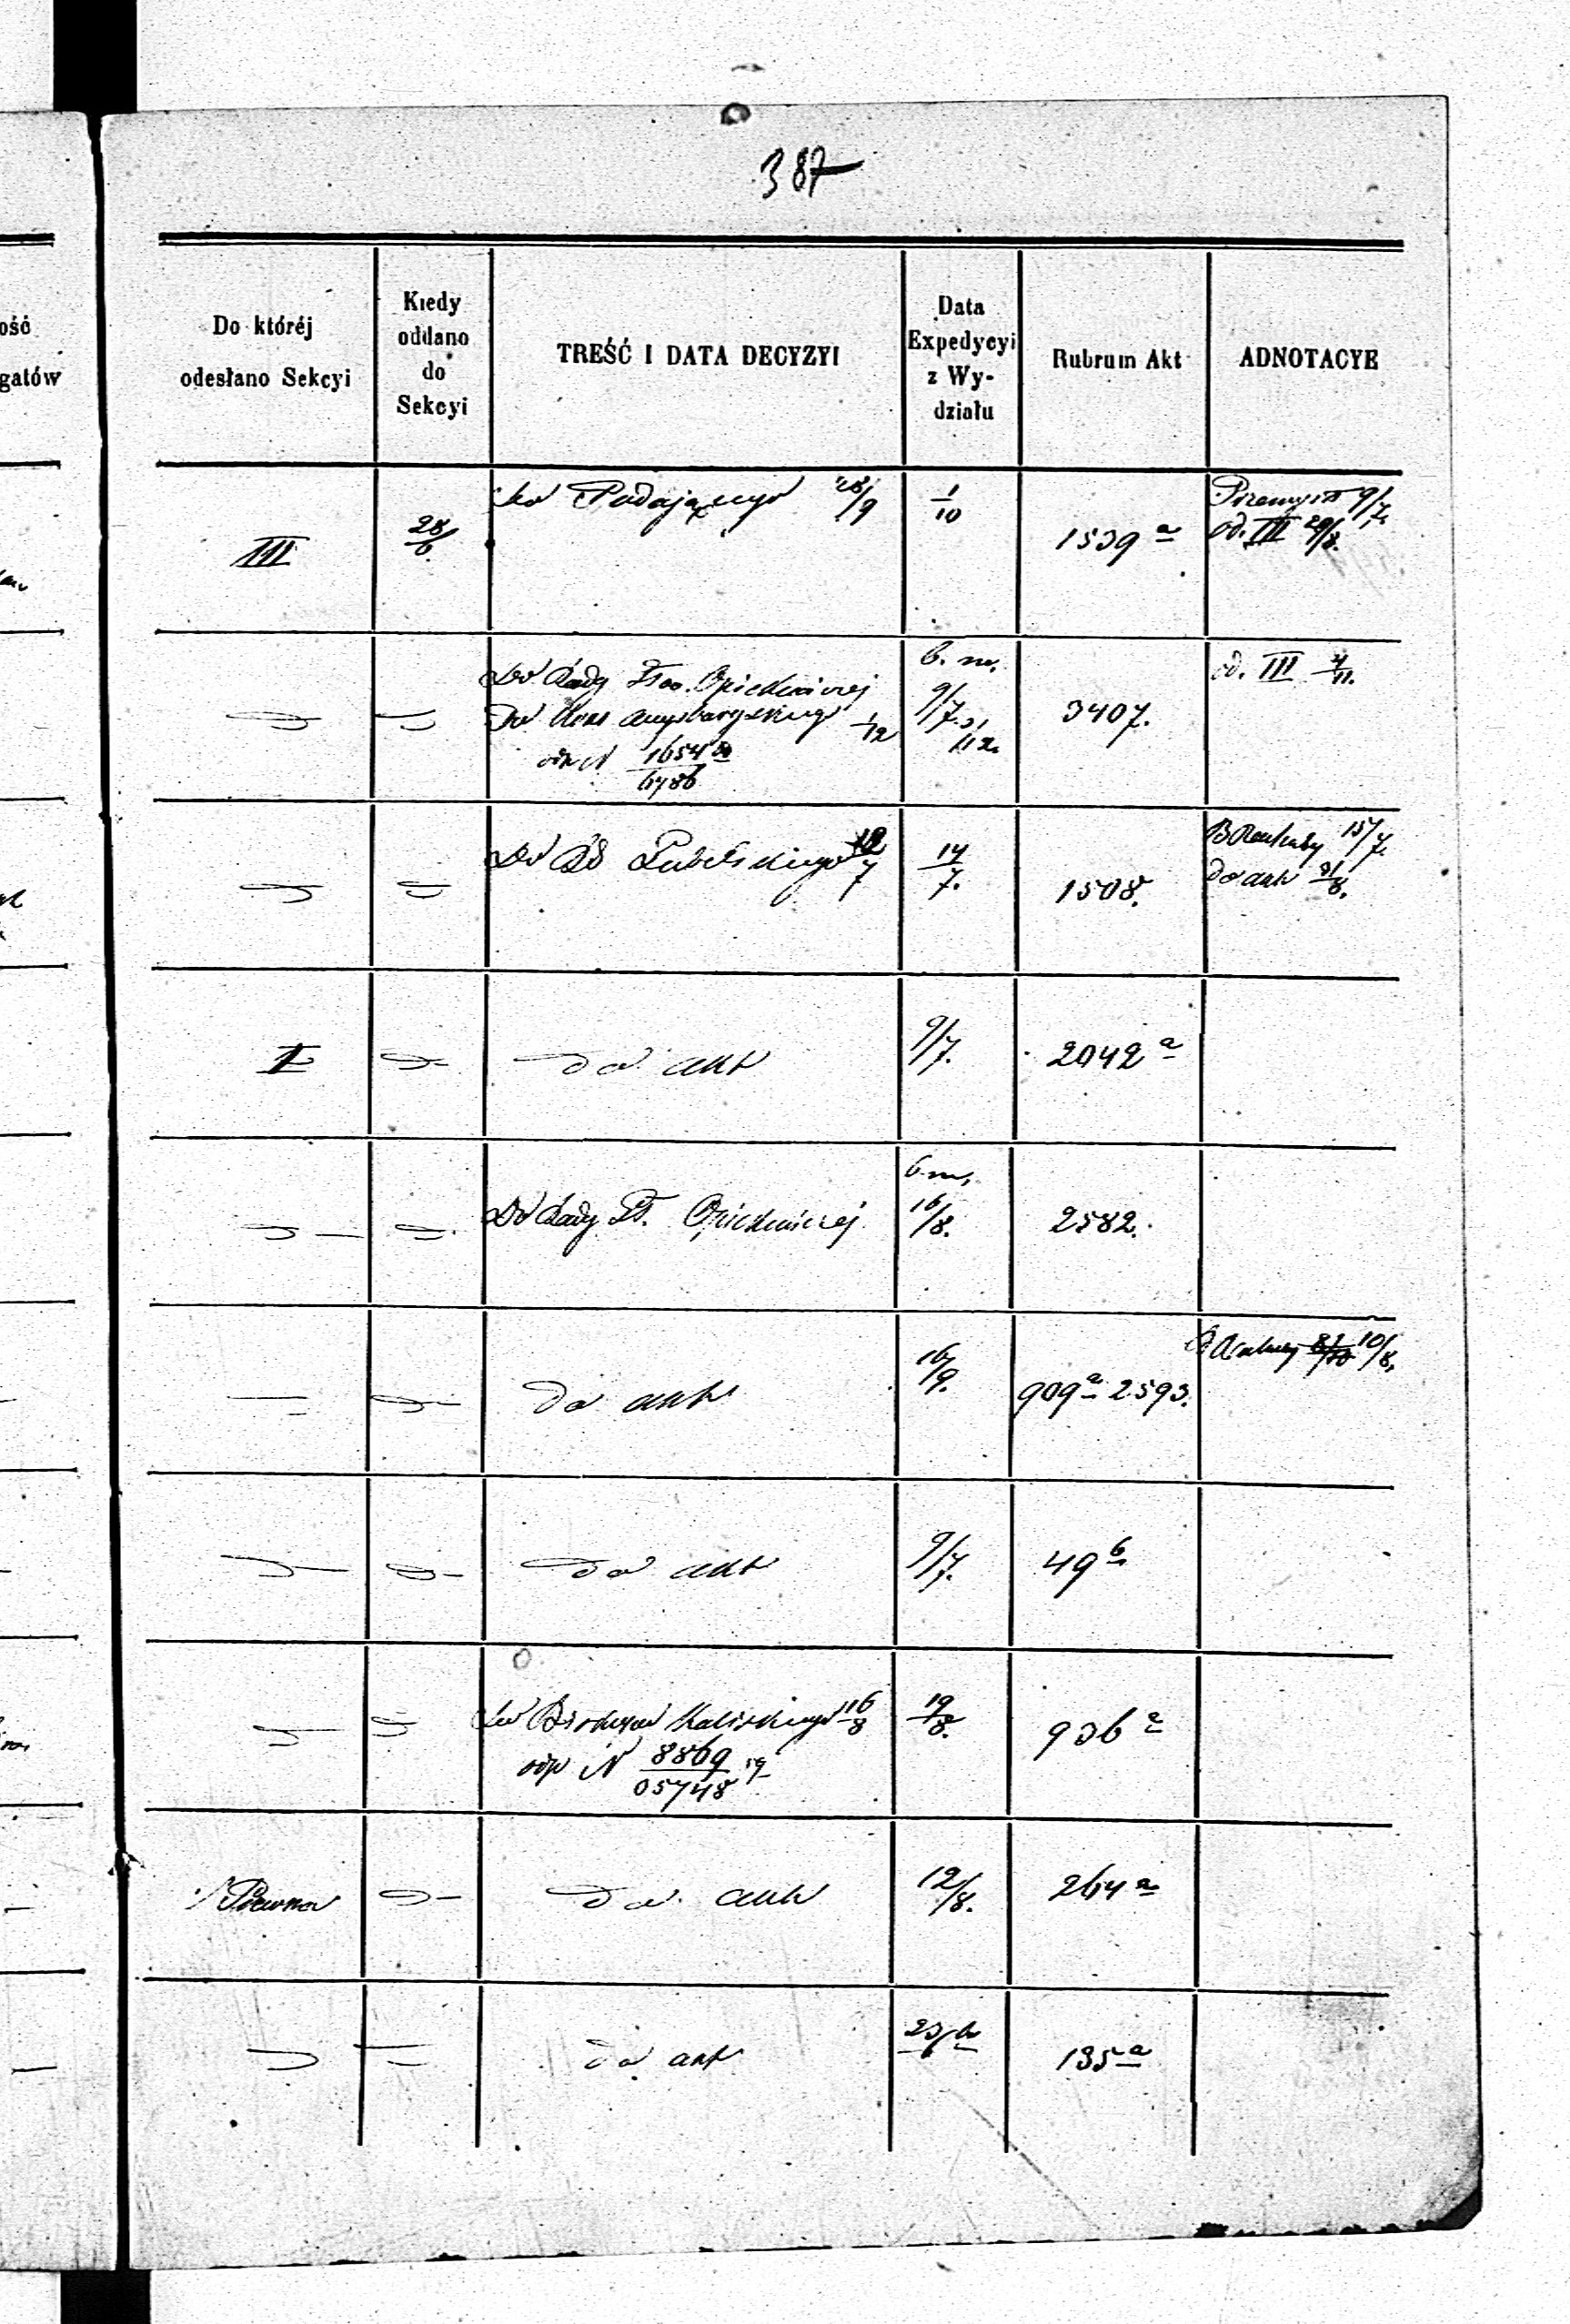 387
ość
gatów
Do któréj
odesłano Sekcyi
Kiedy
oddano
do
Sekcyi
TREŚĆ I DATA DECYZYI
Data
Expedycyi
z Wy-
działu
Rubrum Akt
ADNOTACYE
III
28/6
Do Podającego 28/9
1/10
1539 a
Przemysł 9/7.
od. III 29/8.
Do Rady Opiekuńczej
Do 1/12
odp N 1654
6786
b. m.
9/7.
3407.
od. III 4/11.
Do Lubelskiego 12/7
14/7.
1508.
15/7.
do akt 31/8.
I
do akt
9/7.
2042 a
Do Rady Opiekuńczej
b. m.
16/8.
2582.
do akt
16/9.
909 a 2593.
10/8.
do akt
9/7.
49 b
Do Biskupa Kaliskiego 16/8
odp N 8869
05748
19/8.
936 a
Prawna
do akt
12/8.
264 a
do akt
23/6
135 a